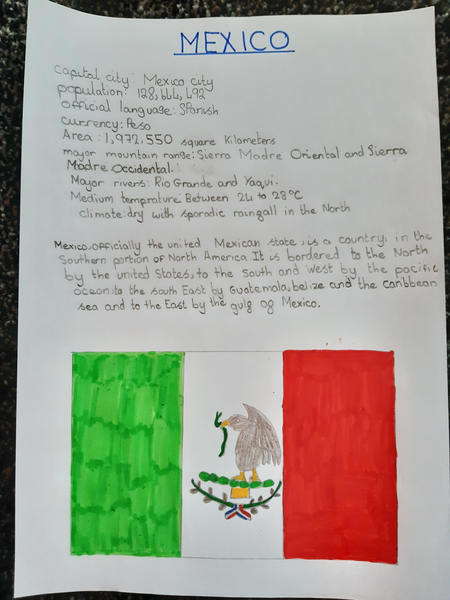 MEXICO
capital city: Mexico city
population: 128,644,492
official language: Spanish
currency: Peso
Area: 1,972,550 square Kilometers
mayor mountain range: Sierra Madre Oriental and Sierra
Madre Occidental.
Mayor rivers: Rio Grande and Yaqui.
Medium temprature: Between 24 to 28°C
climate: dry with sporadic raingall in the North
Mexico, officially the united Mexican state, is a country, in the
Southern portion of North America. It is bordered to the North
by the united States, to the South and West by the pacific
ocean, to the south East by Guatemala, belize and the caribbean
sea and to the East by the gulg og Mexico.